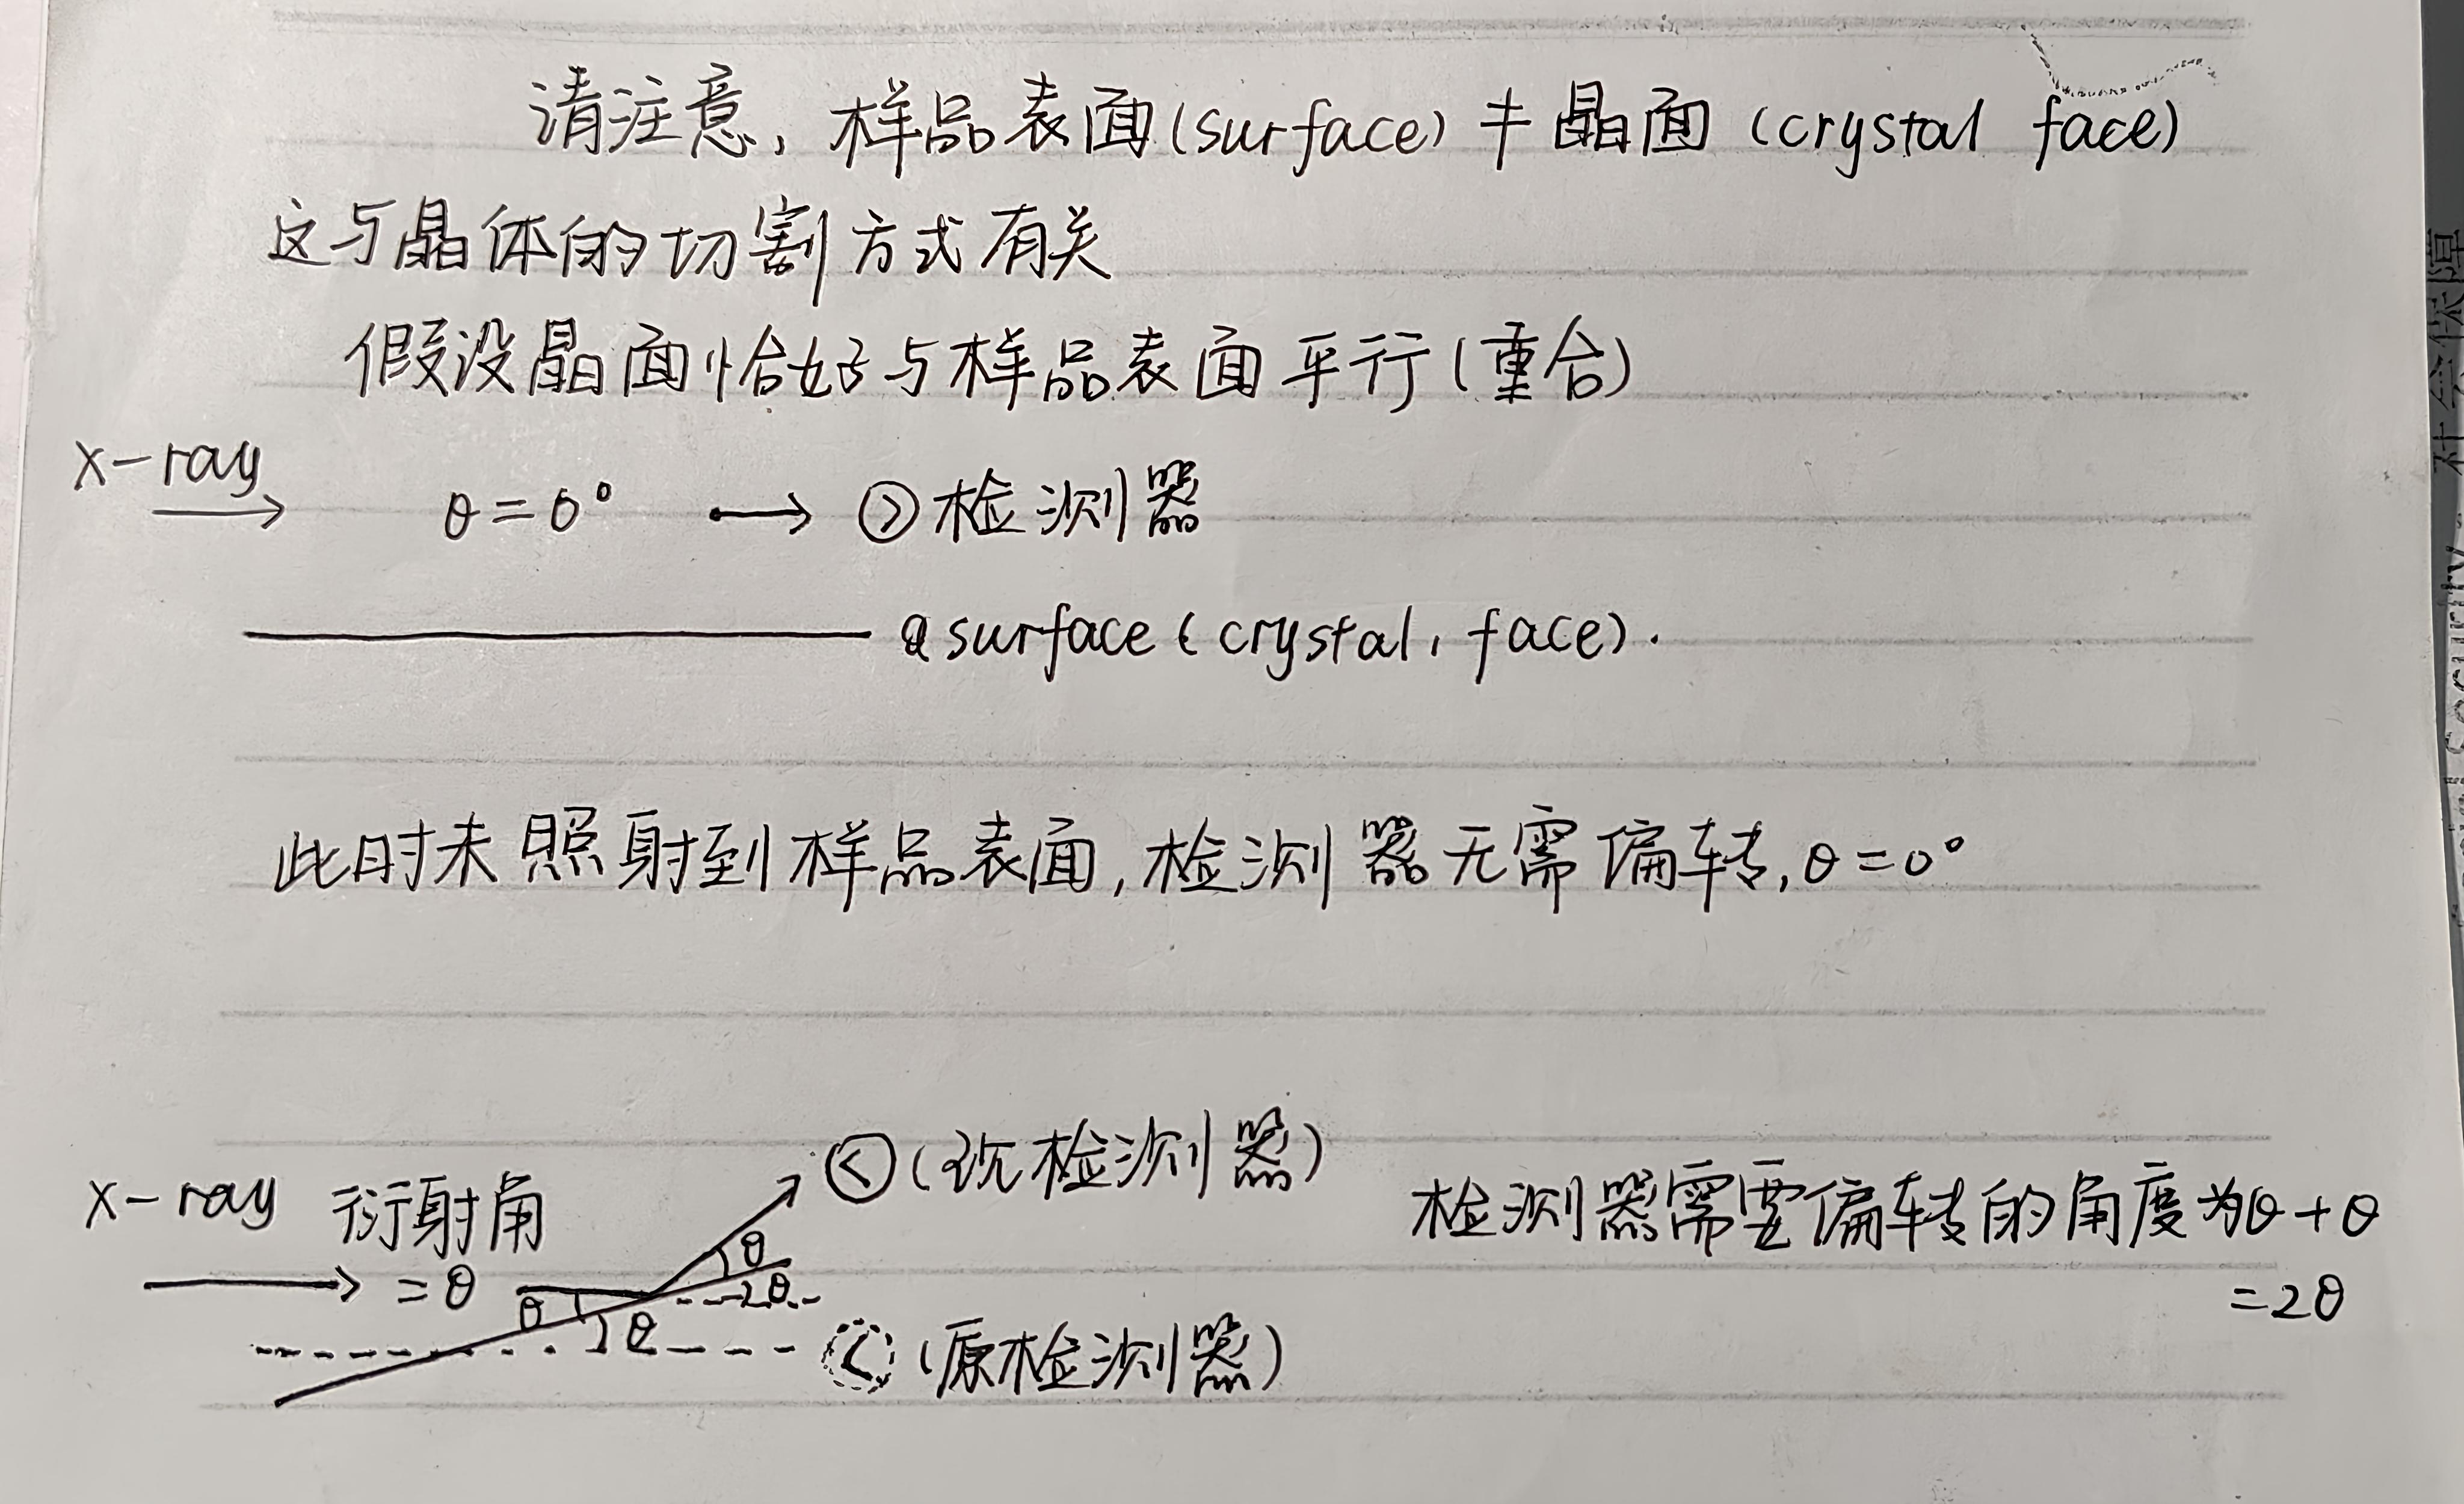 请注意，样品表面(surface)≠晶面 (crystal face)
这与晶体的切割方式有关
假设晶面恰好与样品表面平行(重合)
x-ray
θ=0° → 检测器
surface (crystal, face).
此时未照射到样品表面,检测器无需偏转,θ=0°
(现检测器)
x-ray 衍射角
检测器需要偏转的角度为θ+θ
θ
=θ θ 2θ =2θ
θ (原检测器)